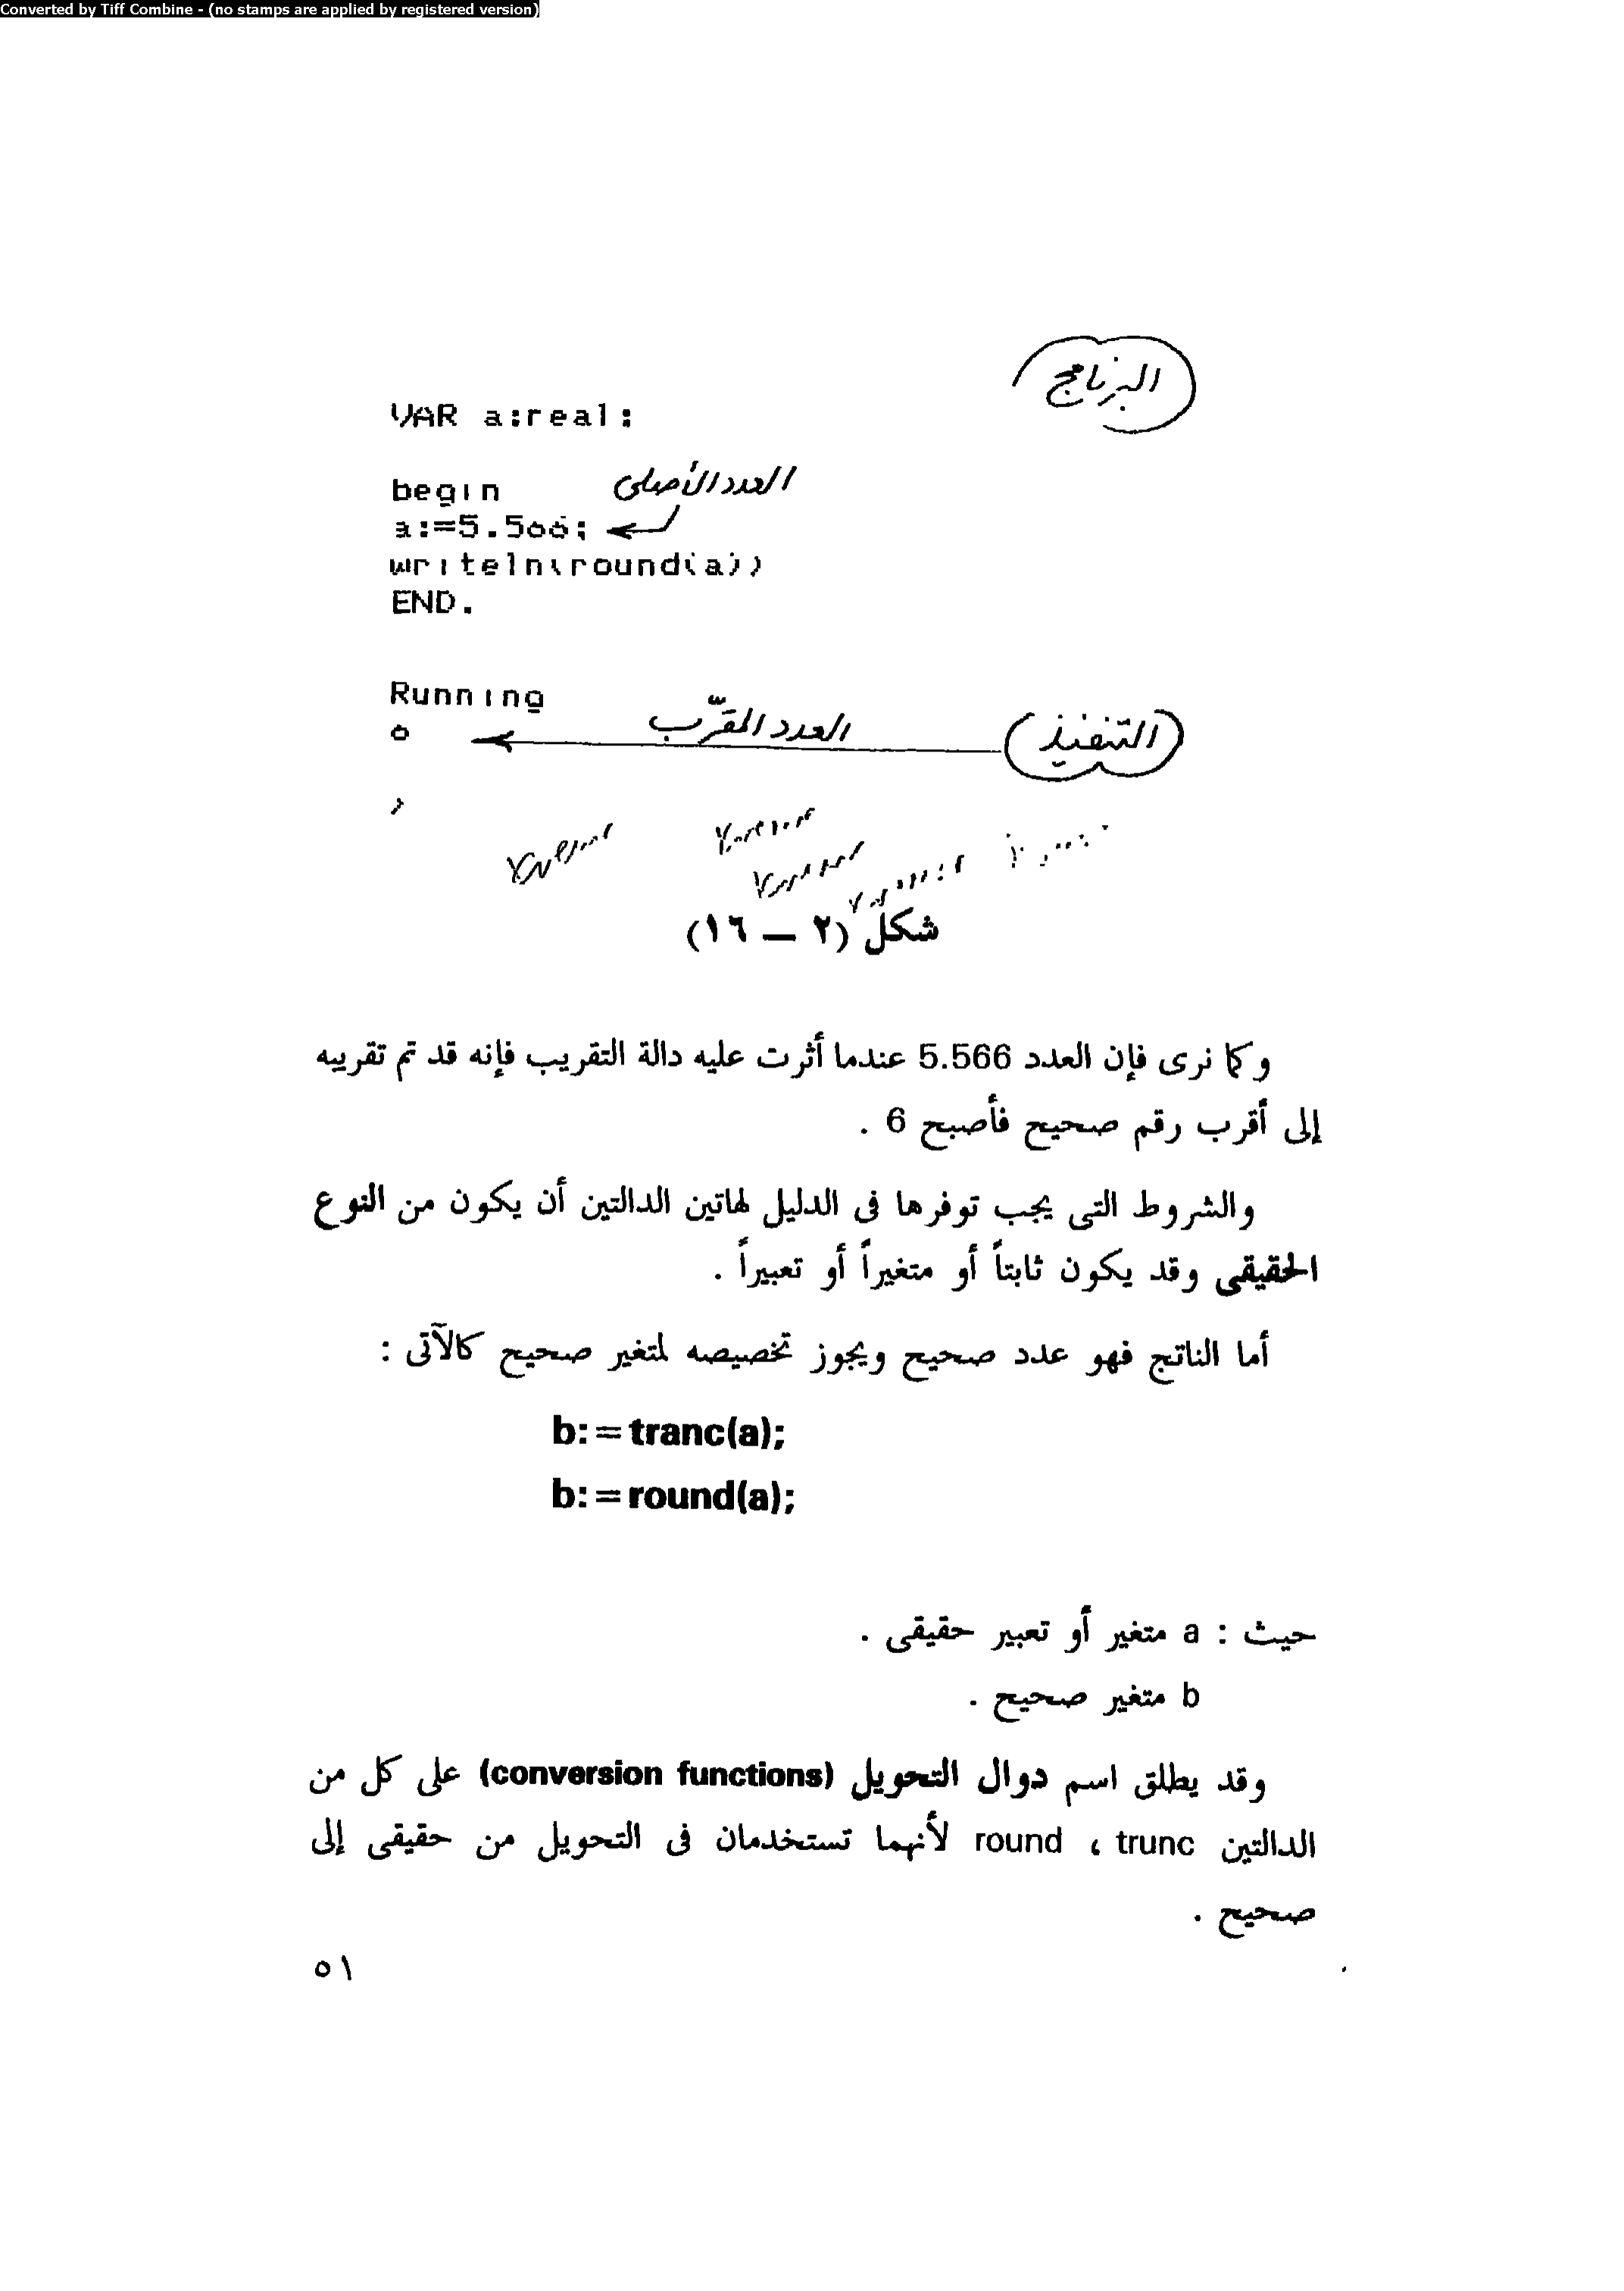 Converted by Tiff Combine - (no stamps are applied by registered version)
البرنامج
VAR a:real;
begin
العدد الأصلى
a:=5.566;
writeln(round(a))
END.
Running
6
العدد المقرّب
(التنفيذ)
شكل (٢ – ١٦)
وكما نرى فإن العدد 5.566 عندما أثرت عليه دالة التقريب فإنه قد تم تقريبه
إلى أقرب رقم صحيح فأصبح 6 .
والشروط التى يجب توفرها فى الدليل لهاتين الدالتين أن يكون من النوع
الحقيقى وقد يكون ثابتاً أو متغيراً أو تعبيراً .
أما الناتج فهو عدد صحيح ويجوز تخصيصه لمتغير صحيح كالآتى :
b:=tranc(a);
b:=round(a);
حيث : a متغير أو تعبير حقيقى .
b متغير صحيح .
وقد يطلق اسم دوال التحويل (conversion functions) على كل من
الدالتين round ، trunc لأنهما تستخدمان فى التحويل من حقيقى إلى
صحيح .
٥١